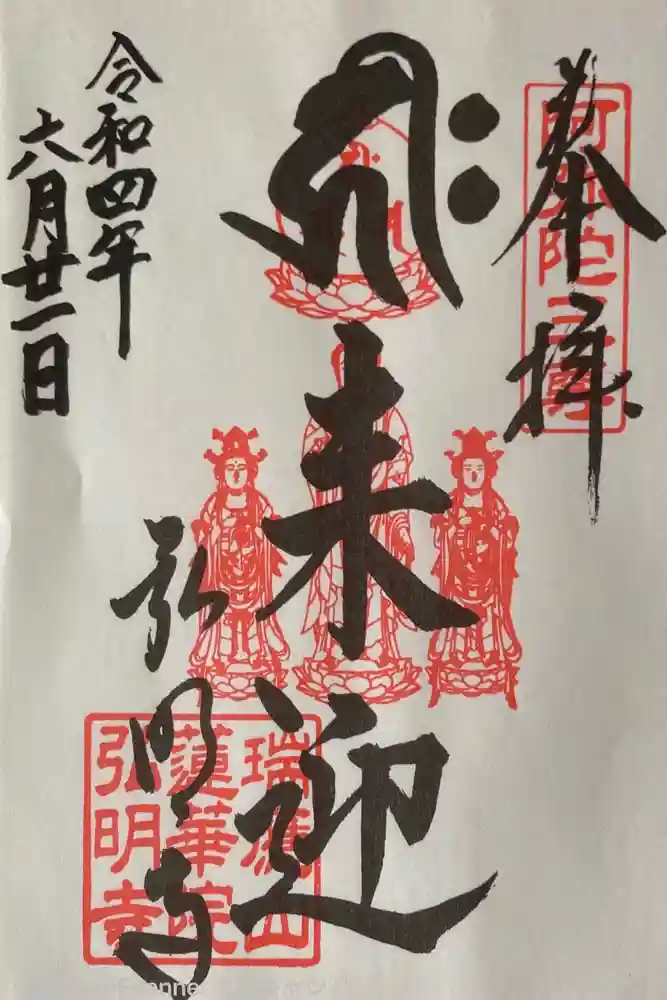 奉拝
阿弥陀三尊
キリーク
来迎
弘明寺
瑞應山
蓮華院
弘明寺
令和四年
六月廿一日